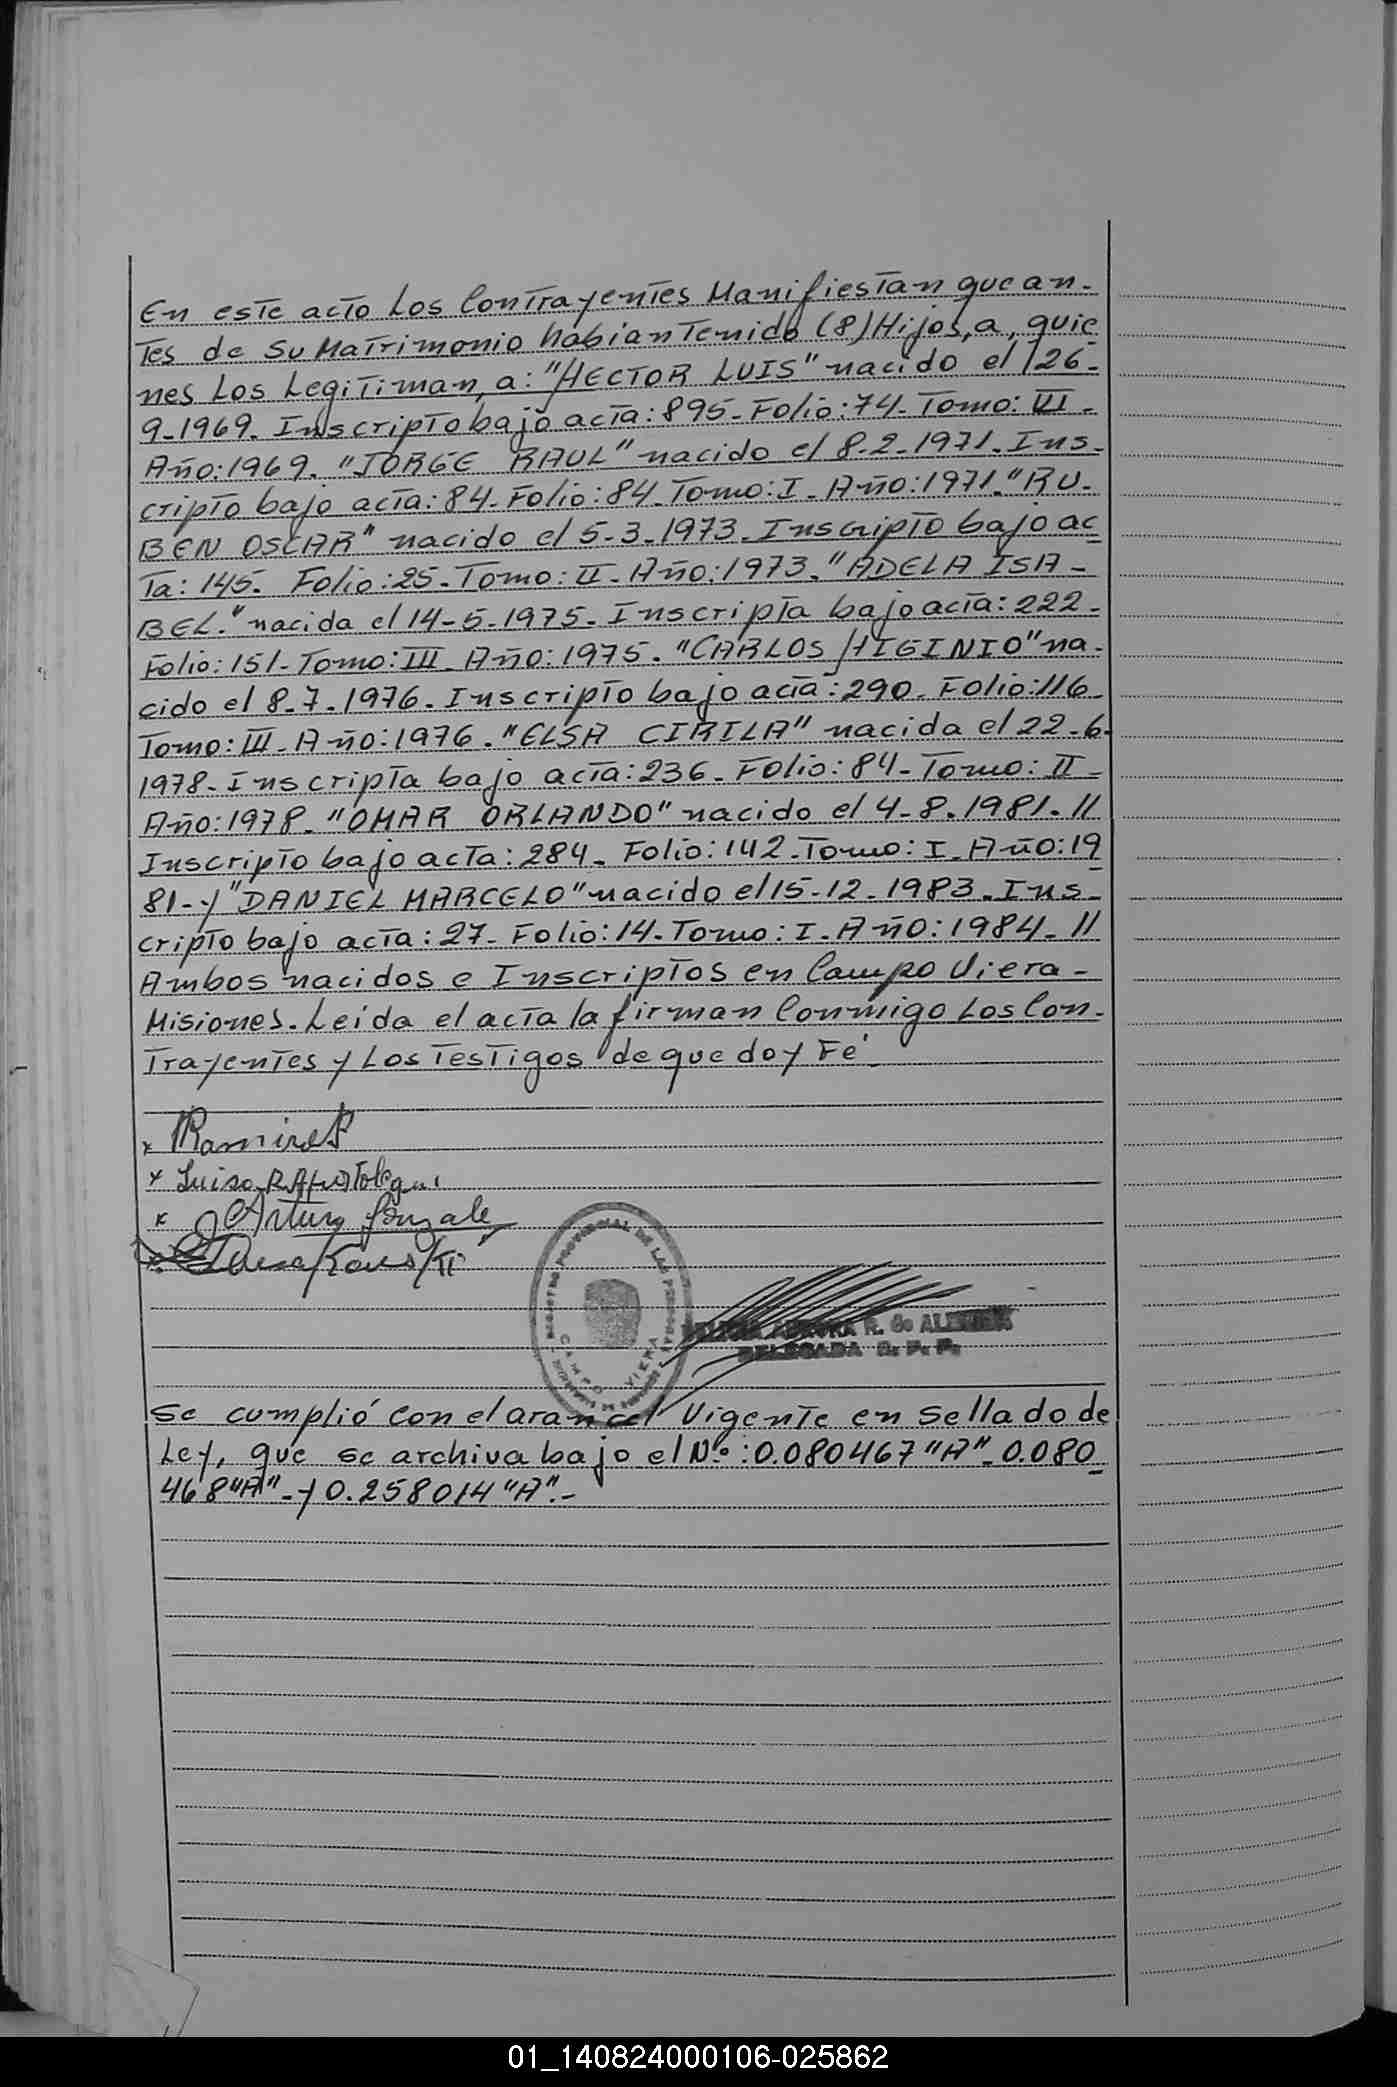 En este acto Los Contrayentes Manifiestan que an-
tes de Su Matrimonio habian Tenido (8) Hijos, a, quie
nes Los Legitiman, a: "HECTOR LUIS" nacido el 26-
9-1969. Inscripto bajo acta: 895- Folio: 74- Tomo: VI-
Año: 1969. "JORGE RAUL" nacido el 8-2-1971. Ins-
cripto bajo acta: 84- Folio: 84- Tomo: I- Año: 1971. "RU-
BEN OSCAR" nacido el 5-3-1973- Inscripto bajo ac
Ta: 145. Folio: 25- Tomo: II- Año: 1973. "ADELA ISA-
BEL." nacida el 14-5-1975- Inscripta bajo acta: 222-
Folio: 151- Tomo: III- Año: 1975. "CARLOS HIGINIO" na-
cido el 8-7-1976- Inscripto bajo acta: 290- Folio: 116-
Tomo: III- Año: 1976. "ELSA CIRILA" nacida el 22-6-
1978- Inscripta bajo acta: 236- Folio: 84- Tomo: II-
Año: 1978- "OMAR ORLANDO" nacido el 4-8-1981. //
Inscripto bajo acta: 284- Folio: 142- Tomo: I- Año: 19
81- y "DANIEL MARCELO" nacido el 15-12-1983. Ins-
cripto bajo acta: 27- Folio: 14- Tomo: I- Año: 1984- //
Ambos nacidos e Inscriptos en Campo Viera-
Misiones. Leida el acta la firman Conmigo Los Con-
Trayentes y Los Testigos de que doy Fé
x Ramirez
x Luisa R
x Arturo Gonzale
REGISTRO PROVINCIAL DE LAS PERSONAS
CAMPO VIERA
R. de
DELEGADA R. P. P.
Se cumplió con el arancel Vigente en Sellado de
Ley, que se archiva bajo el Nº: 0.080467 "A"- 0.080
468 "A"- y 0.258014 "A".-
01_140824000106-025862